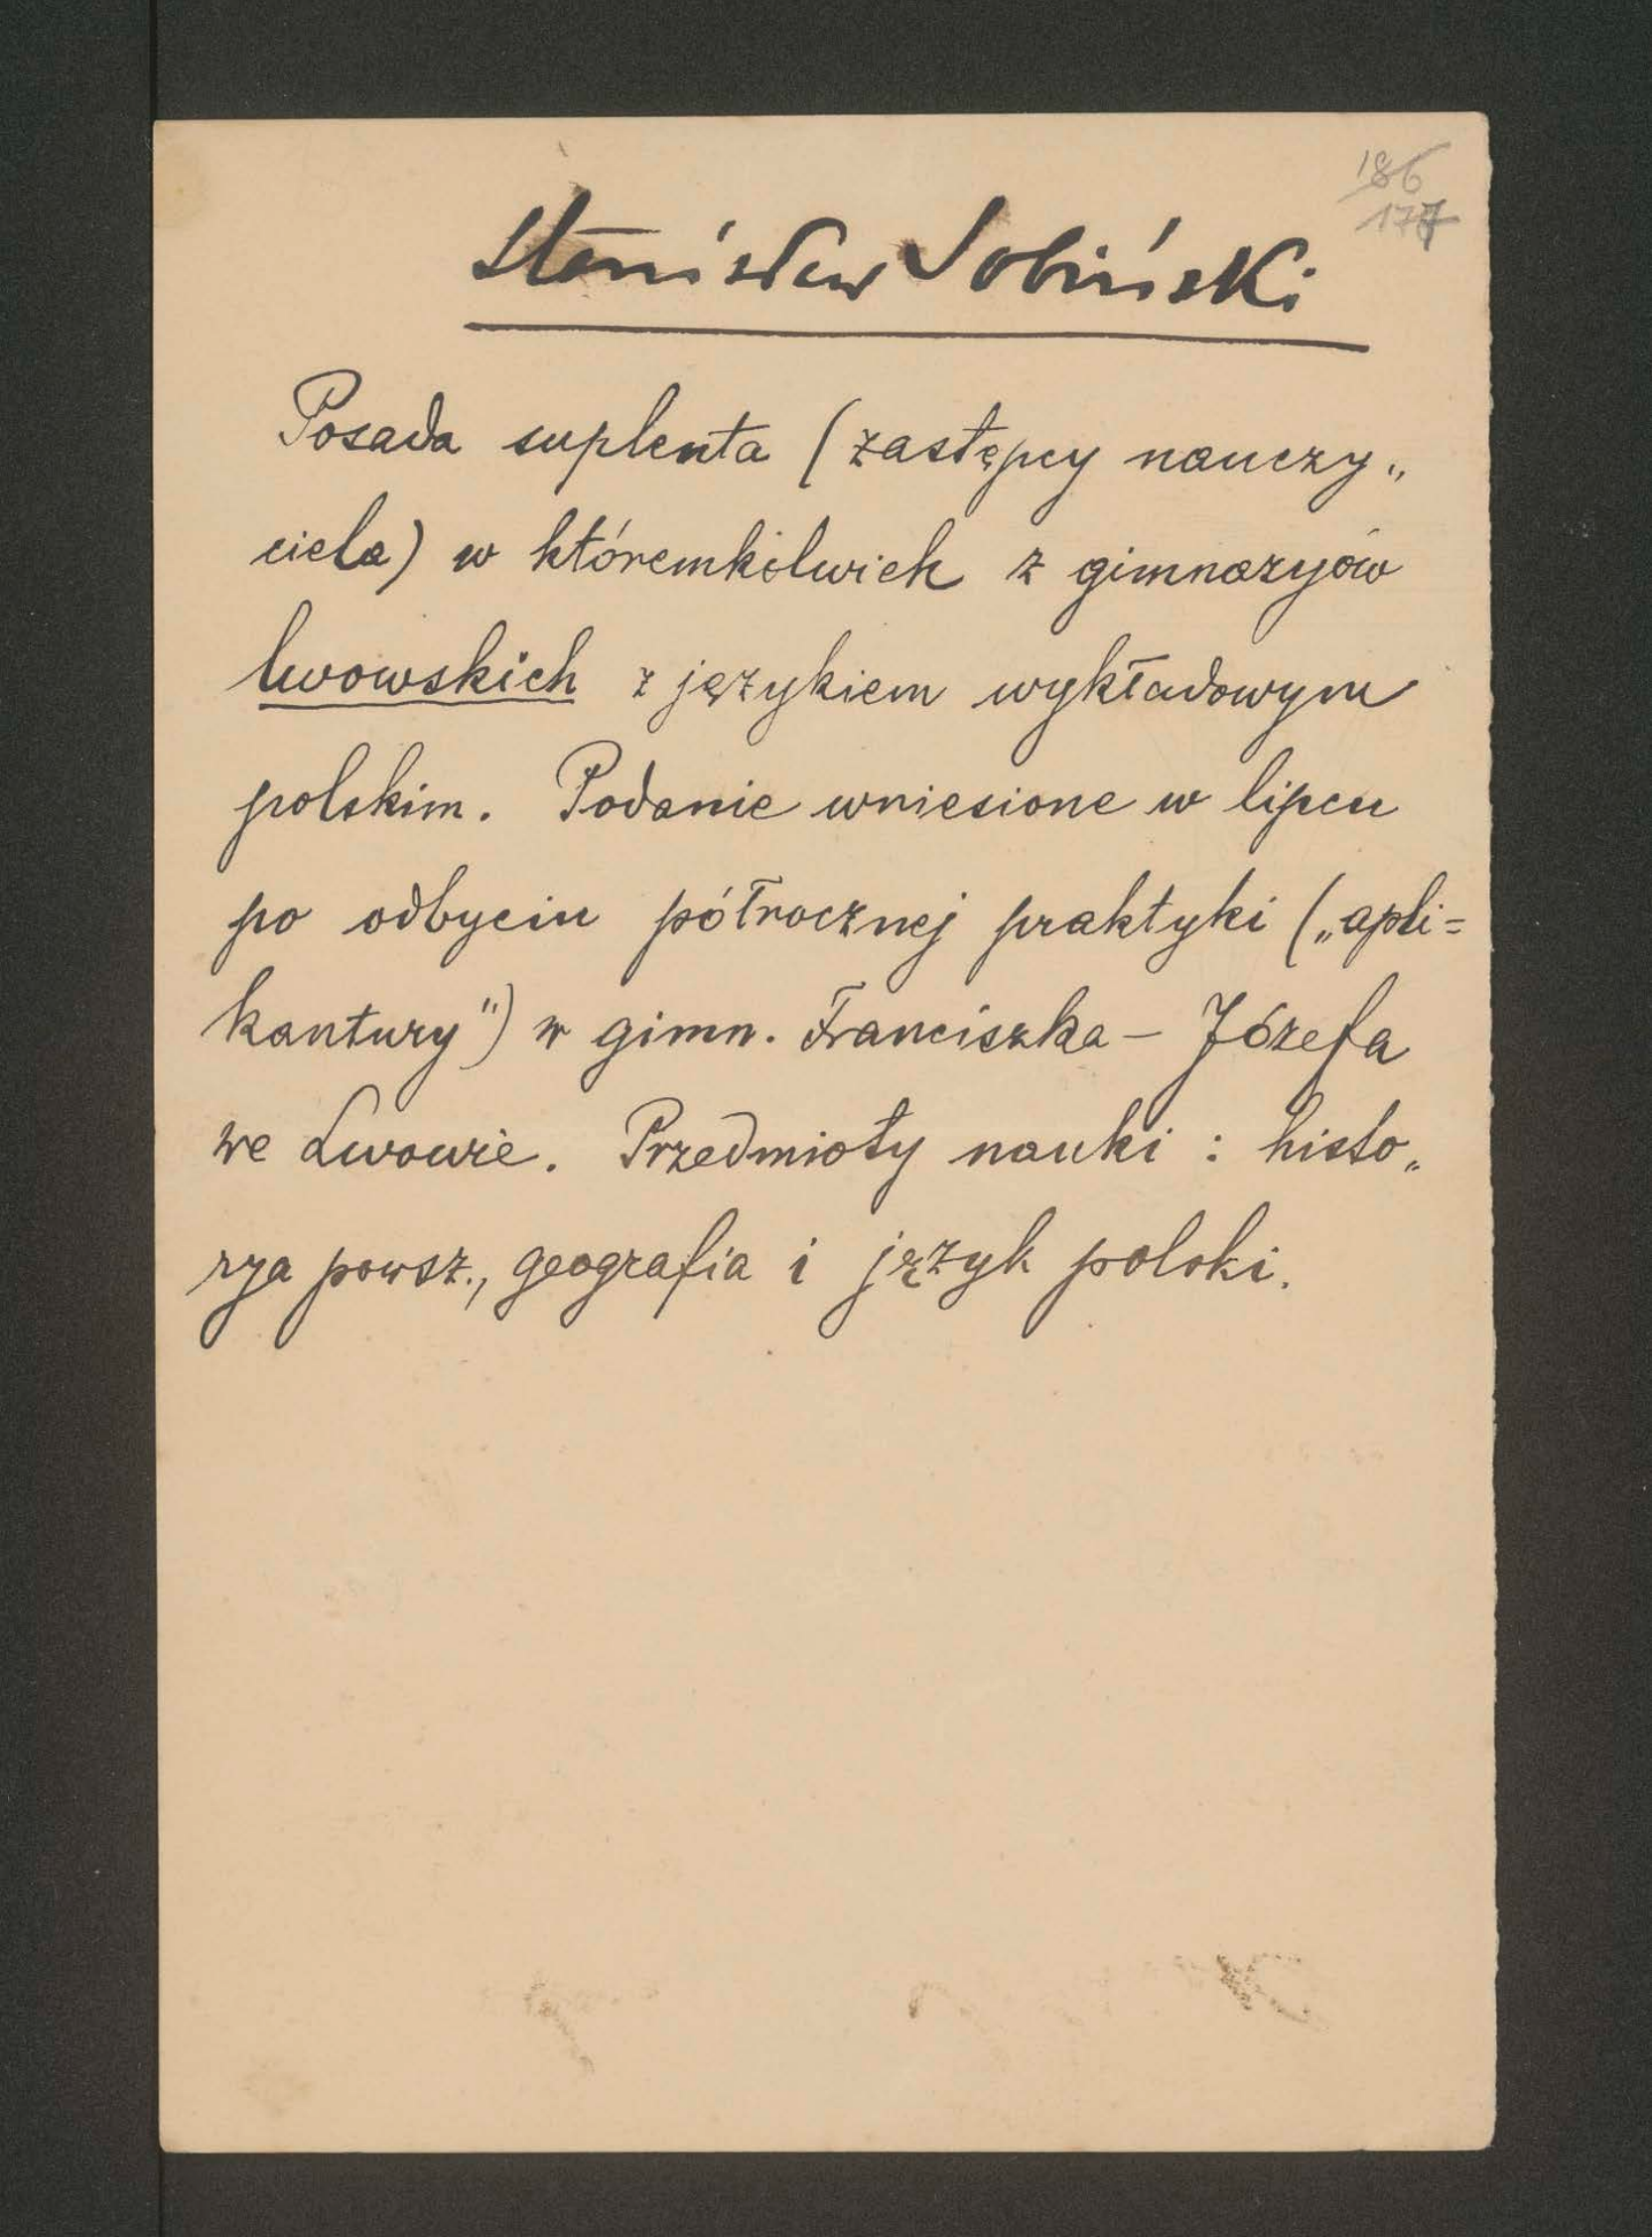 186
177
Stanisław Sobiński
Posada suplenta (zastępcy nauczy„
ciela) w któremkolwiek z gimnazyów
lwowskich z językiem wykładowym
polskim. Podanie wniesione w lipcu
po odbyciu półrocznej praktyki („apli=
kantury") w gimn. Franciszka – Józefa
we Lwowie. Przedmioty nauki : histo„
rya powsz., geografia i język polski.